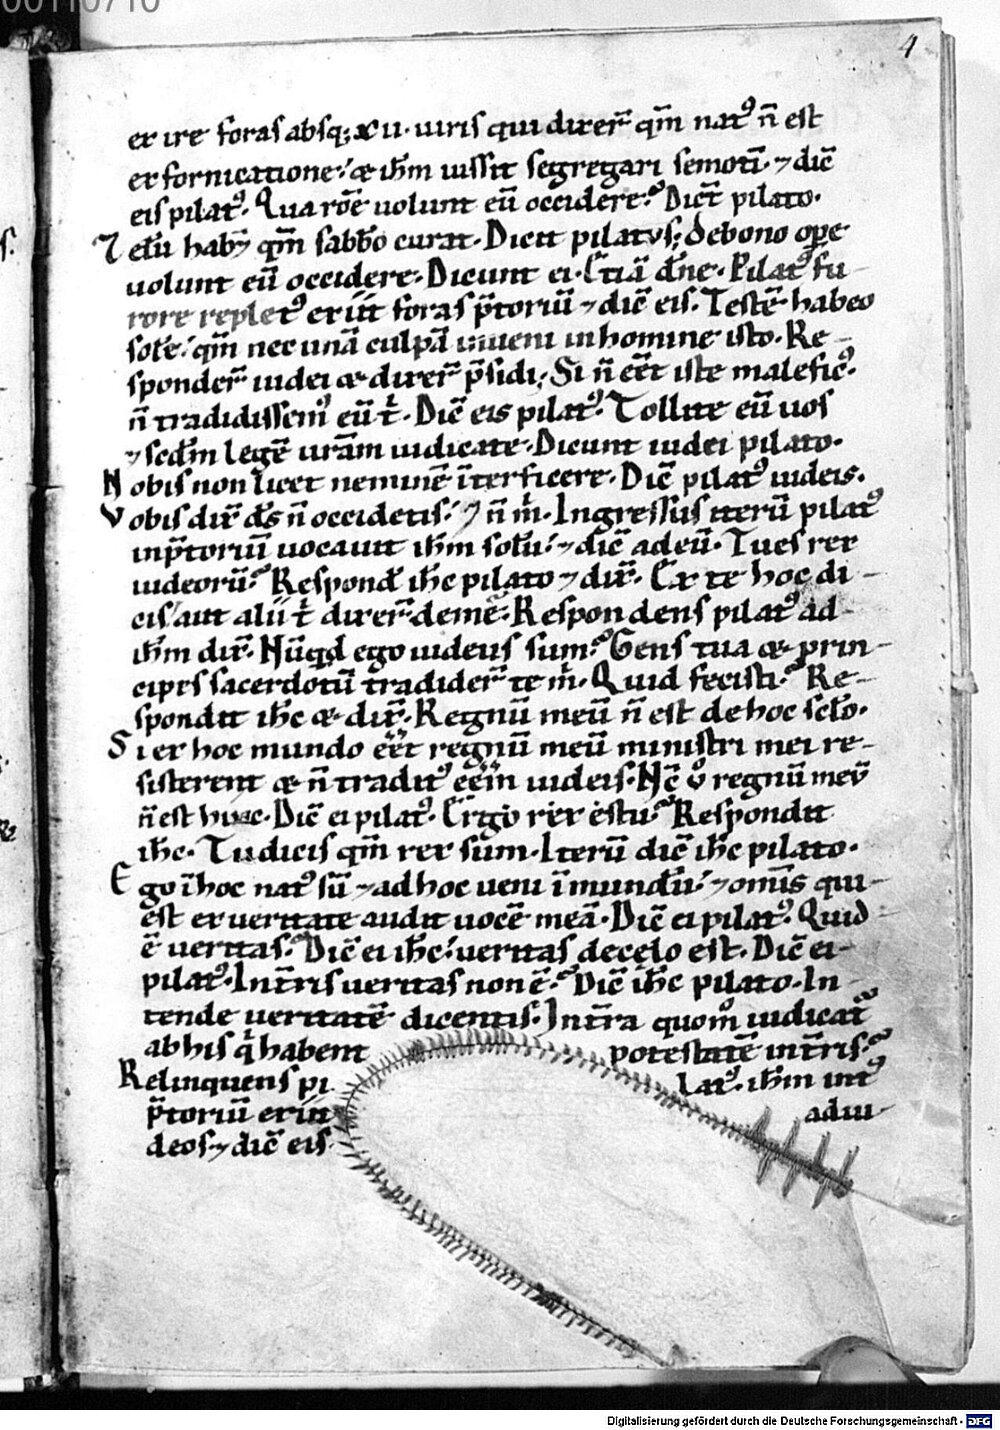 00110710
4
ex ire foras absq; xii· uiris qui dixer̄ qm̄ natꝰ n̄ est
ex fornicatione· & ihm̄ iussit segregari semoti· ⁊ dic̄
eis pilatꝰ· Qua roē uolunt eū occidere? Dic̄t pilato·
Zelū hab; qm̄ sabb̄o curat· Dicit pilatus; de bono oꝑe
uolunt eū occidere· Dicunt ei· Etiā dn̄e· Pilatꝰ fu-
rore repletꝰ exiit foras p̄toriū ⁊ dic̄ eis· Testē habeo
solē· qm̄ nec unā culpā inueni in homine isto· Re-
sponder̄ iudei & dixer̄ p̄sidi; Si n̄ eēt iste maleficꝰ·
n̄ tradidissemꝰ eū t̄· Dic̄ eis pilatꝰ· Tollite eū uos
⁊ scdm̄ legē urām iudicate· Dicunt iudei pilato·
Nobis non licet neminē īterficere· Dic̄ pilatꝰ iudeis·
Vobis dix̄ ds̄ n̄ occidetis· ⁊ n̄ m̄· Ingressus iterū pilatꝰ
in p̄toriū uocauit ihm̄ solū· ⁊ dic̄ ad eū· Tu es rex
iudeorū? Respond̄ ihc̄ pilato ⁊ dix̄· Ex te hoc di-
cis· aut alii t̄ dixer̄ de me· Respondens pilatꝰ ad
ihm̄ dix̄· Nūqd ego iudeus sum? Gens tua & prin-
cipes sacerdotū tradider̄ te m̄· Quid fecisti? Re-
spondit ihc̄ & dix̄· Regnū meū n̄ est de hoc sclo·
Si ex hoc mundo eēt regnū meū ministri mei re-
sisterent & n̄ traditꝰ eēm iudeis· Nc̄ ū regnū meū
n̄ est hinc· Dic̄ ei pilatꝰ· Ergo rex es tu? Respondit
ihc̄· Tu dicis qm̄ rex sum· Iterū dic̄ ihc̄ pilato·
Ego ī hoc natꝰ sū ⁊ ad hoc ueni ī mundū· ⁊ omīs qui
est ex ueritate audit uocē meā· Dic̄ ei pilatꝰ· Quid
ē ueritas? Dic̄ ei ihc̄· ueritas de celo est· Dic̄ ei
pilatꝰ· In tr̄ris ueritas non ē? Dic̄ ihc̄ pilato· In-
tende ueritatē dicentis· In tr̄ra quomº iudicatꝰ
ab his q̄ habent potestatē in tr̄ris?
Relinquens pilatꝰ· ihm̄ intꝰ
p̄toriū exiit ad iu-
deos ⁊ dic̄ eis·
Digitalisierung gefördert durch die Deutsche Forschungsgemeinschaft - DFG